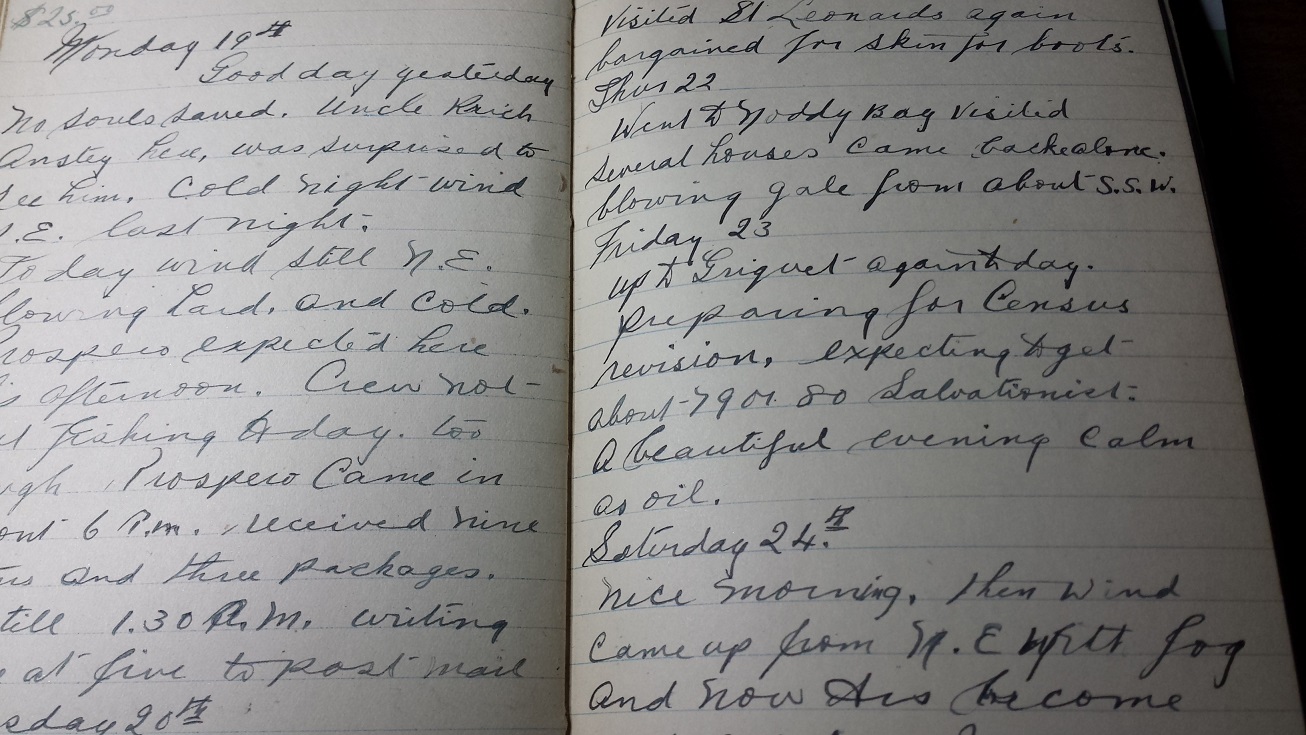 $25.00
Monday 19th
Good day yesterday
No souls saved. Uncle
Anstey here, was surprised to
see him. Cold night wind
N.E. last night.
Today wind still N.E.
lowing hard. and cold.
rospero expected here
is afternoon. Crew not
ut fishing to day. too
ugh Prospero Came in
out 6 P.m. received nine
ers and three packages.
till 1.30 A.M. writing
at five to post mail
sday 20th
Visited St Leonards again
bargained for skin for boots.
Thur 22
Went to Noddy Bay Visited
several houses came back alone.
blowing gale from about S.S.W.
Friday 23
up to Griquet again to day.
preparing for Census
revision, expecting to get
about 79 or 80 Salvationist.
A beautiful evening calm
as oil.
Saturday 24.th
nice morning, then wind
came up from N.E with fog
and now has become